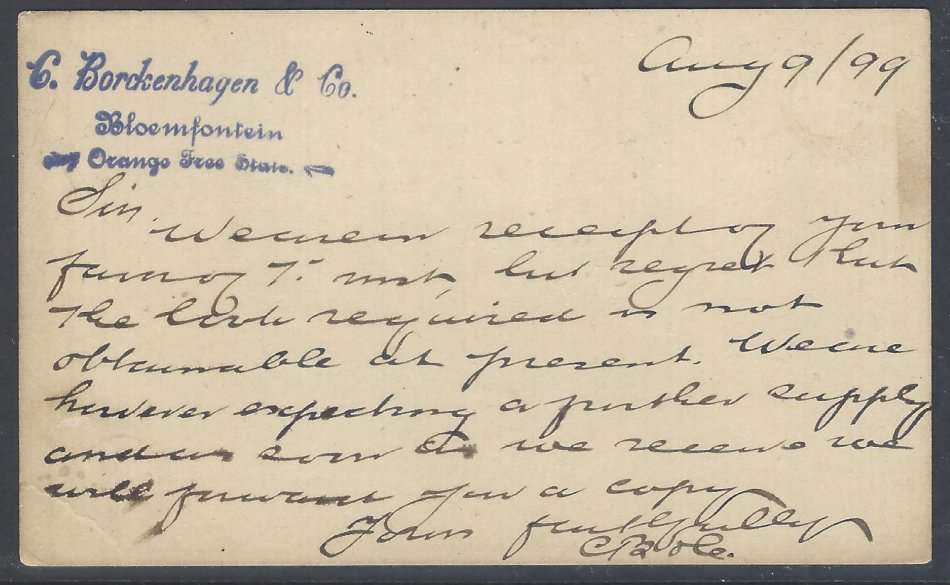 C. Borckenhagen & Co.
Bloemfontein
Orange Free State.
Aug 9/99
Sir,
We are in receipt of your
favor of 7th inst, but regret that
the book required is not
obtainable at present. We are
however expecting a further supply
and as soon as we receive we
will forward you a copy
Yours faithfully
CB & Co.